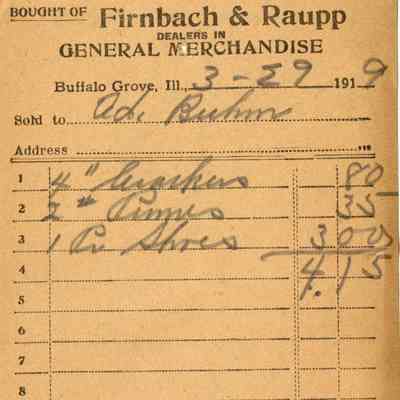 BOUGHT OF Firnbach & Raupp
DEALERS IN
GENERAL MERCHANDISE
Buffalo Grove, Ill. 3-29 1919
Sold to Ed. Buhm
Address
1 4 " Crackers 80
2 2 # Prunes 35
3 1 Pr Shoes 3 00
4 4.15
5
6
7
8